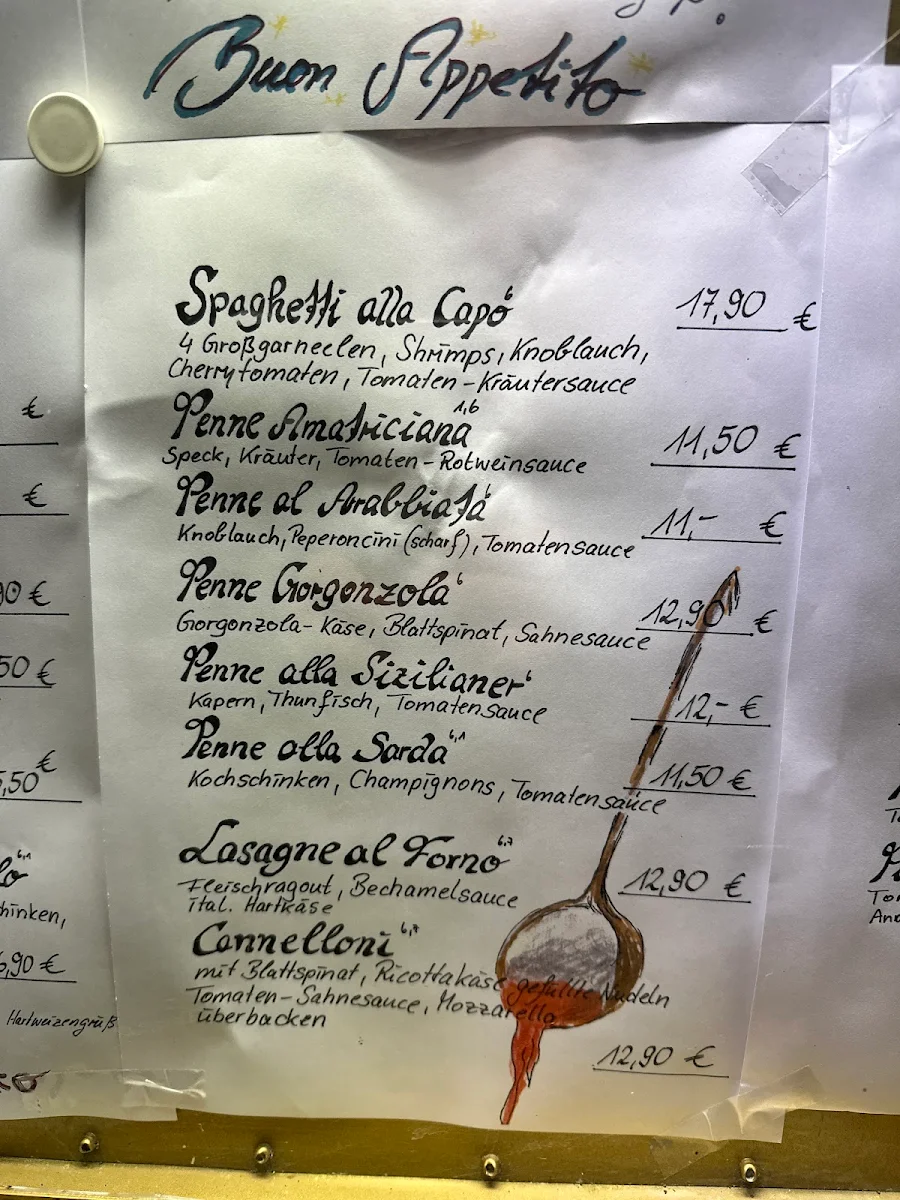 Buon Appetito
Spaghetti alla Capo 6
17,90 €
4 Großgarneelen, Shrimps, Knoblauch,
Cherrytomaten, Tomaten-Kräutersauce
Penne Amatriciana 1,6
11,50 €
Speck, Kräuter, Tomaten-Rotweinsauce
Penne al Arabbiata 6
11,- €
Knoblauch, Peperoncini (scharf), Tomatensauce
Penne Gorgonzola 6
12,90 €
Gorgonzola-Käse, Blattspinat, Sahnesauce
Penne alla Sizilianer 6
12,- €
Kapern, Thunfisch, Tomatensauce
Penne alla Sarda 6,1
11,50 €
Kochschinken, Champignons, Tomatensauce
Lasagne al Forno 6,7
12,90 €
Fleischragout, Bechamelsauce
ital. Hartkäse
Cannelloni
mit Blattspinat, Ricottakäse gefüllte Nudeln
Tomaten-Sahnesauce, Mozzarella
überbacken
12,90 €
€
€
90 €
50 €
5,50 €
6,1
hinken,
6,90 €
Hartweizengrieß